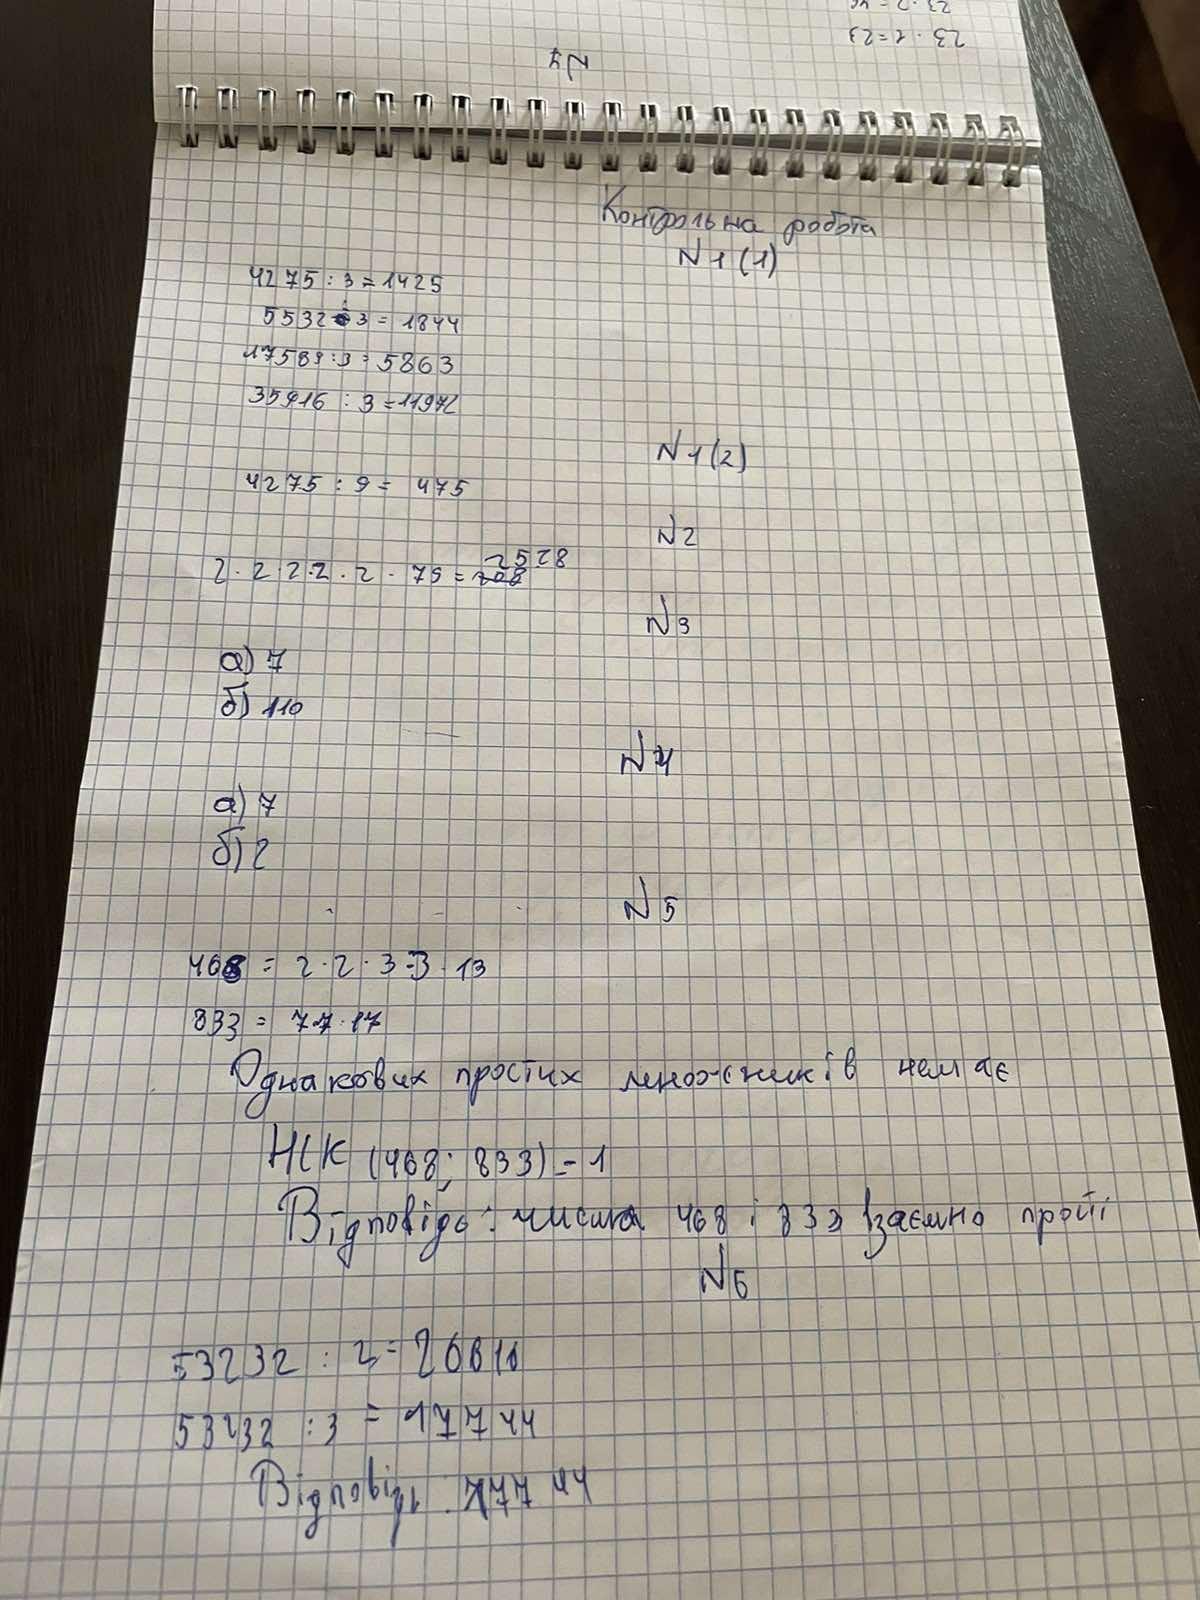 23 · 2 = 46
23 · 1 = 23
N7
Контрольна робота
N1(1)
4275 : 3 = 1425
5532 : 3 = 1844
17589 : 3 = 5863
35916 : 3 = 11972
N1(2)
4275 : 9 = 475
N2
2528
2 · 2 2 · 2 · 2 · 79 =
N3
а) 7
б) 110
N4
а) 7
б) 2
N5
468 = 2 · 2 · 3 · 3 · 13
833 = 7 · 7 · 17
Однакових простих множників немає
НСК (468; 833) = 1
Відповідь: числа 468 і 833 взаємно прості
N6
53232 : 2 = 26616
53232 : 3 = 17744
Відповідь: 17744